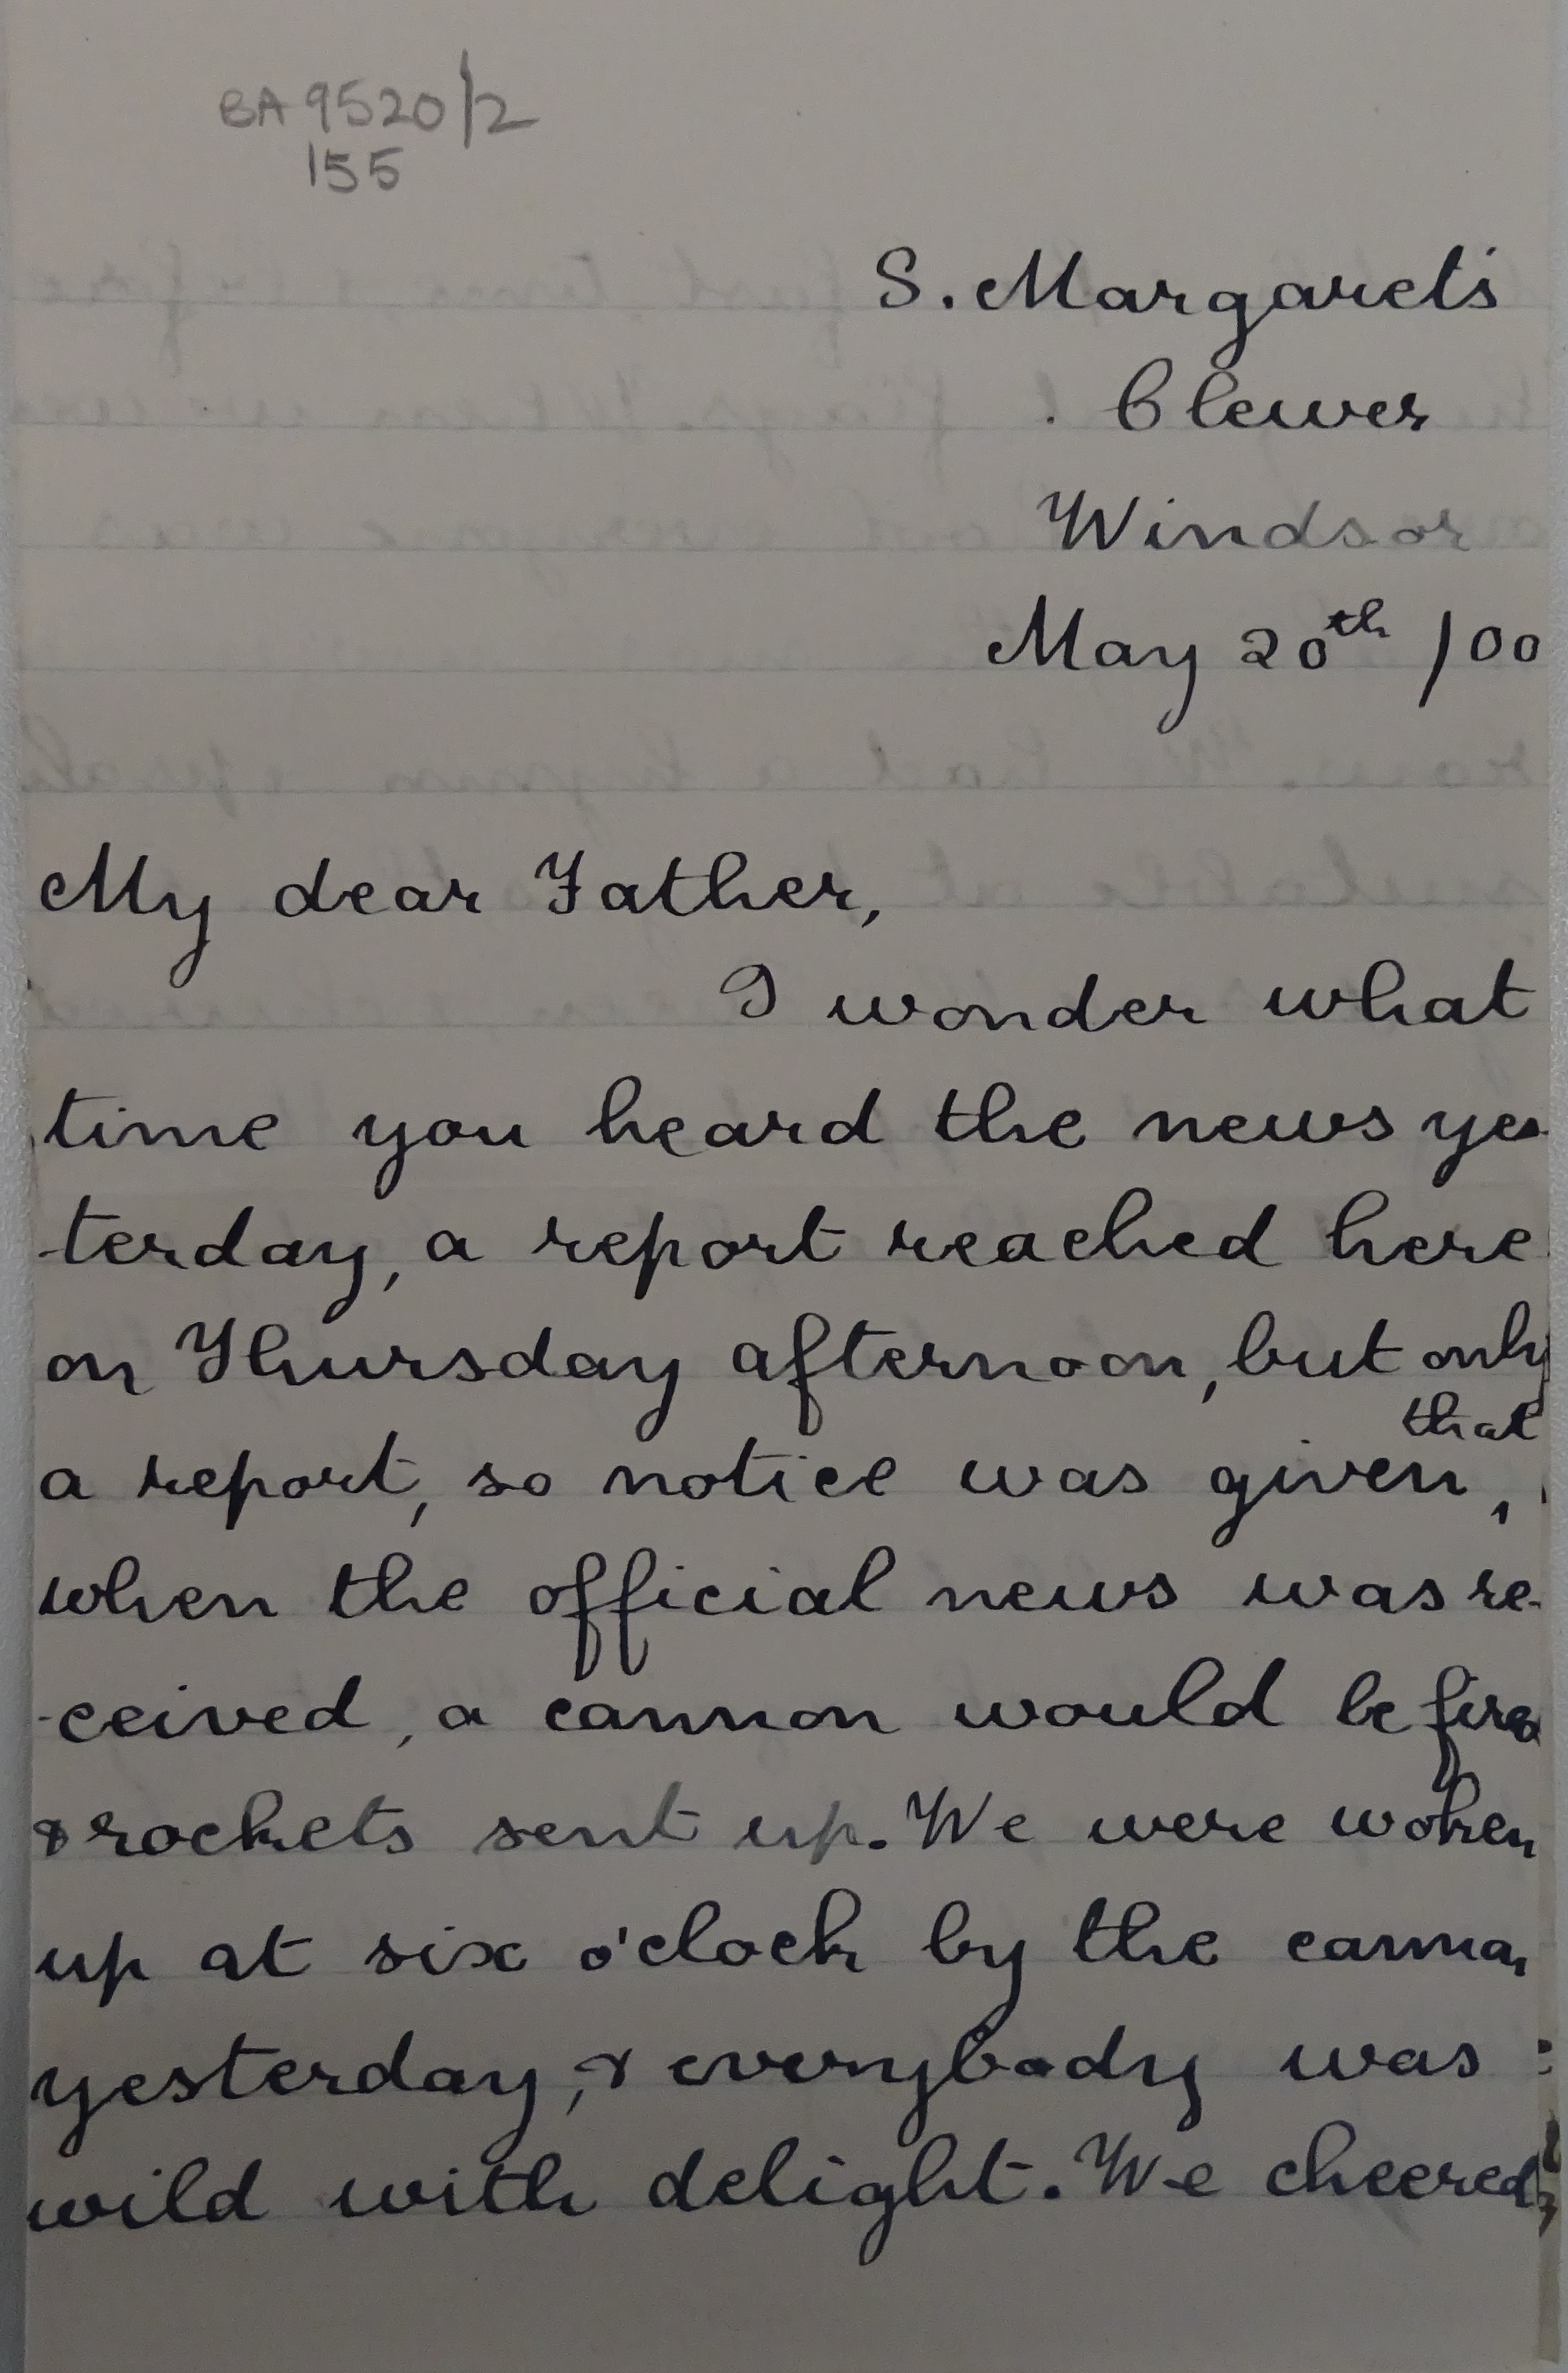 BA 9520/2
155
S. Margaret's
Clewer
Windsor
May 20th /00
My dear Father,
I wonder what
time you heard the news yes-
-terday, a report reached here
on Thursday afternoon, but only
that
a report, so notice was given,
when the official news was re-
-ceived, a cannon would be fired
& rockets sent up. We were woken
up at six o'clock by the cannon
yesterday, & everybody was
wild with delight. We cheered,